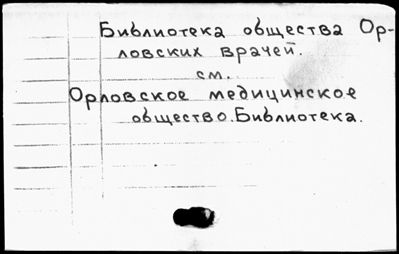 Библиотека общества Ор-
ловских врачей.
см.
Орловское медицинское
общество.Библиотека.